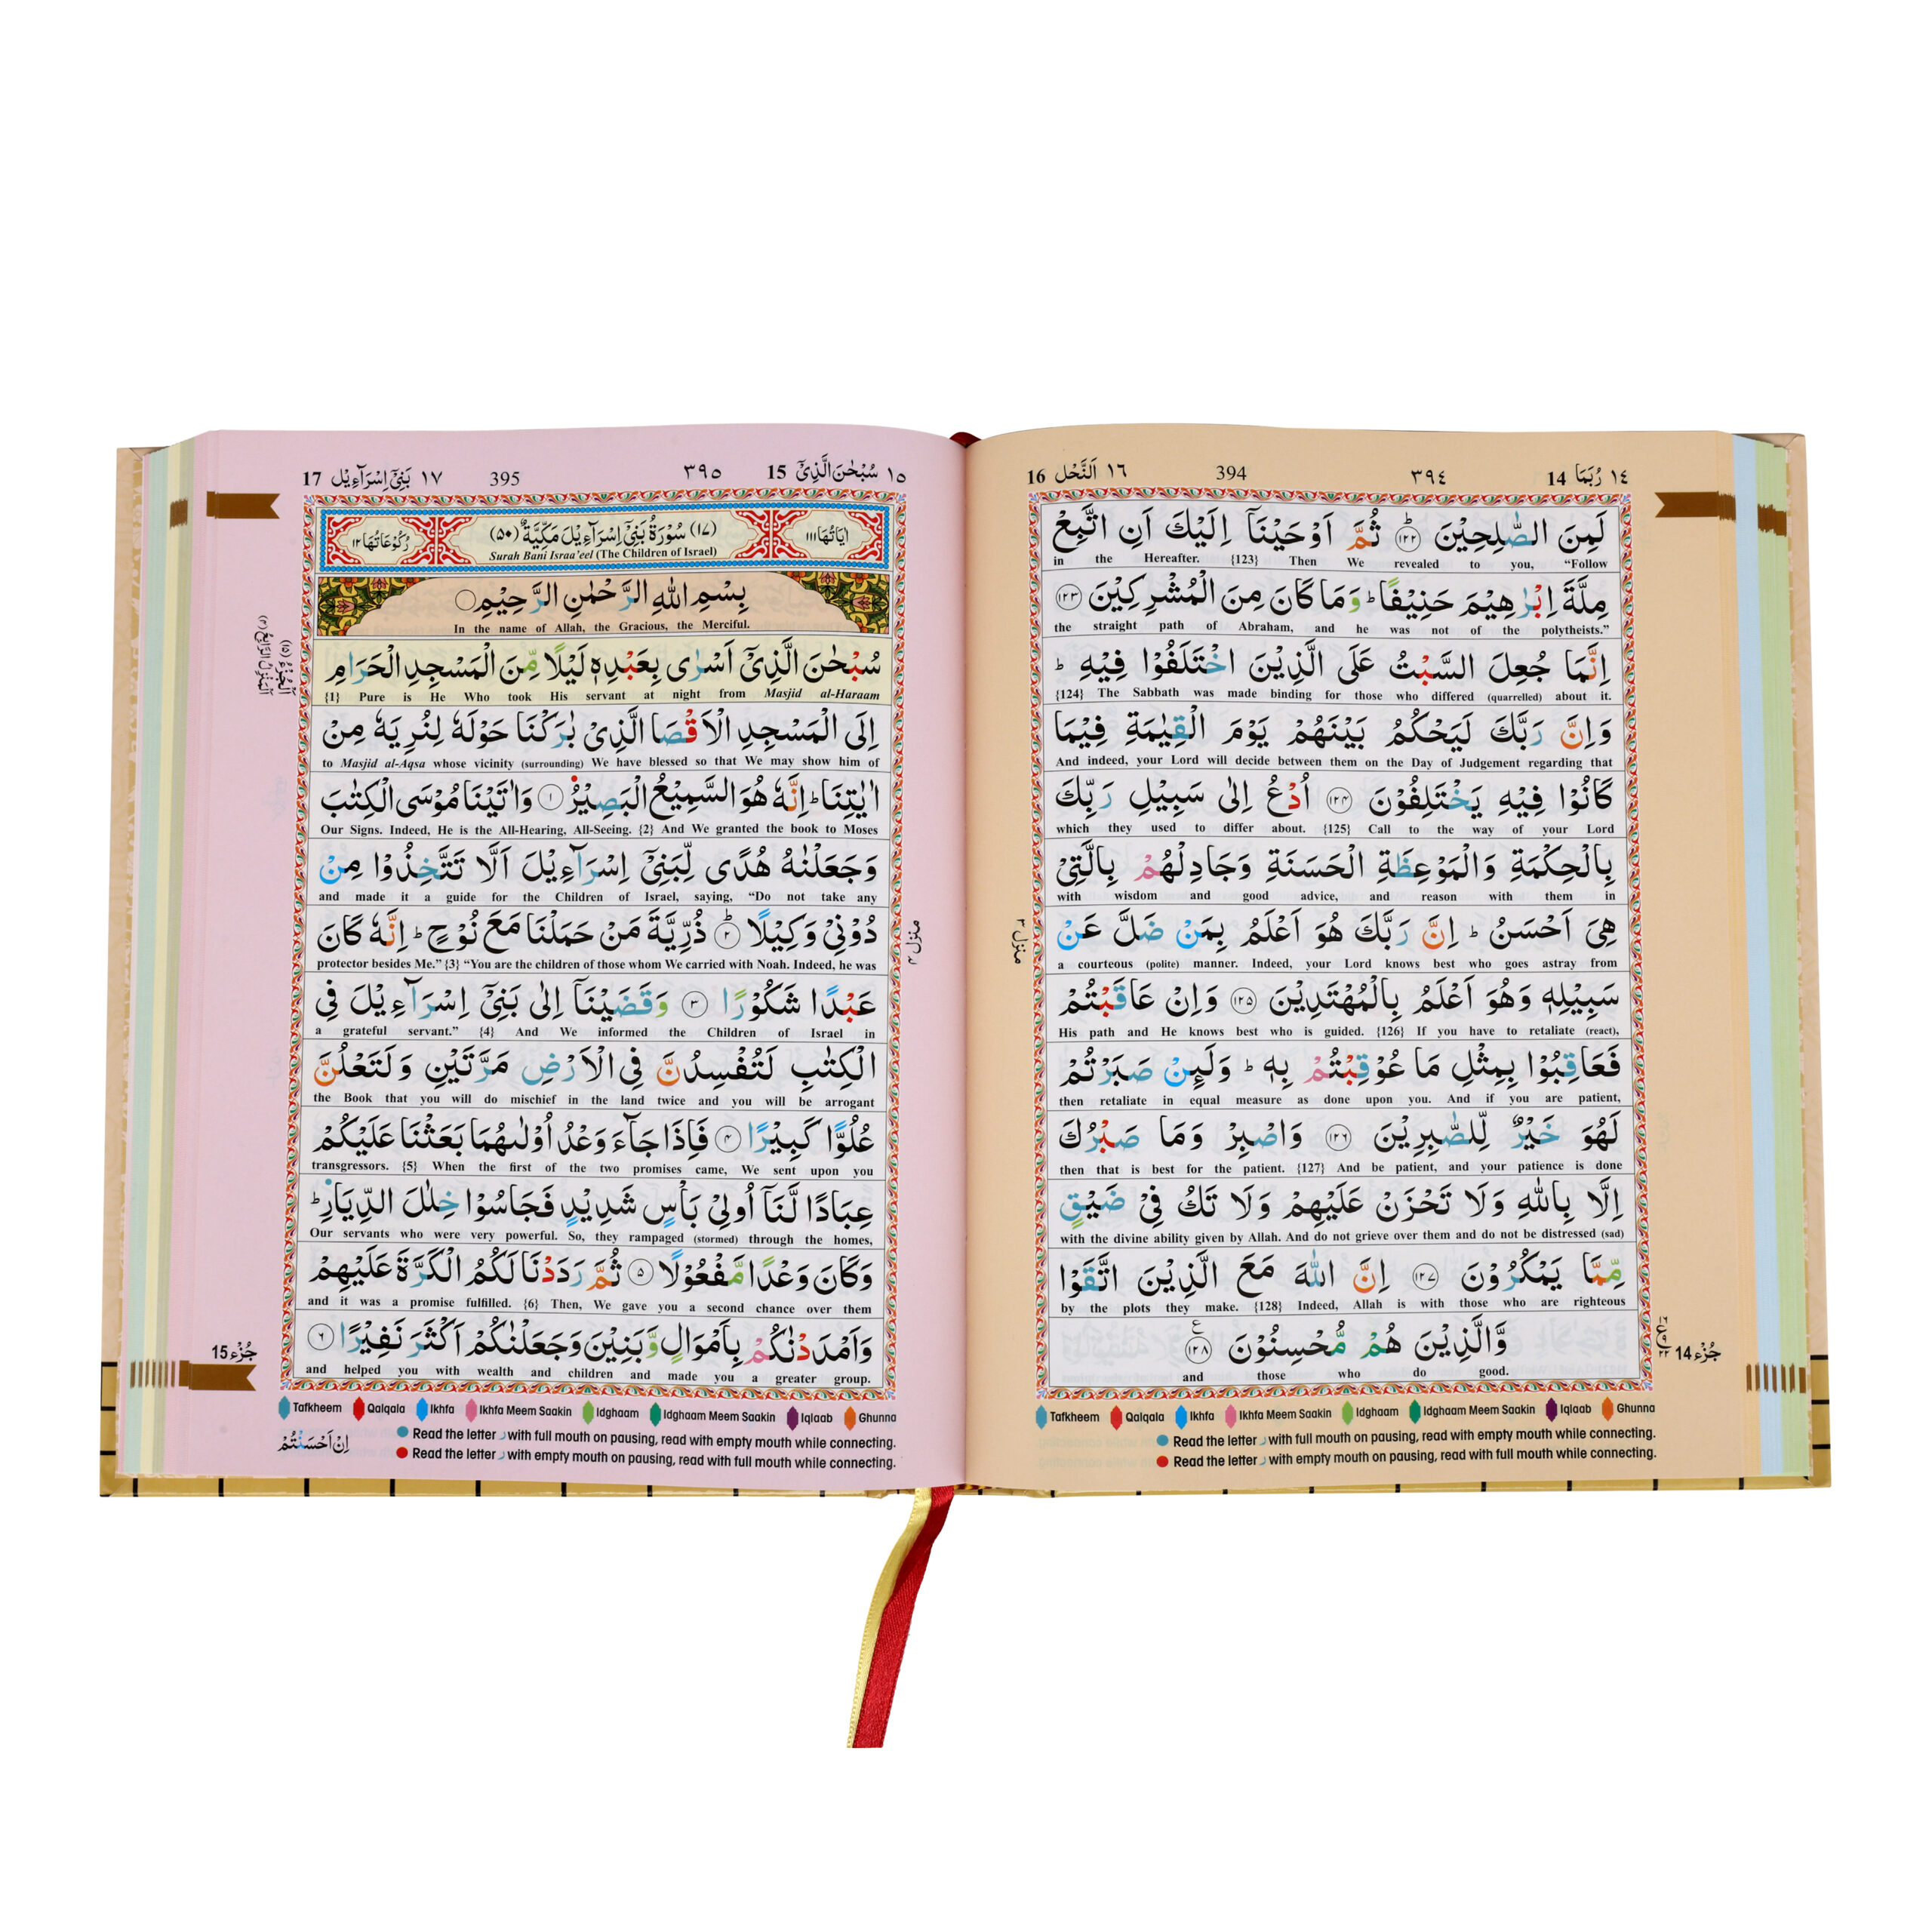 ١٤ رُبَمَا 14
٣٩٤
394
١٦ اَلنَّحْل 16
لَمِنَ الصّٰلِحِيْنَ ؕ﴿۱۲۲﴾ ثُمَّ اَوْحَيْنَاۤ اِلَيْكَ اَنِ اتَّبِعْ
in the Hereafter. {123} Then We revealed to you, “Follow
مِلَّةَ اِبْرٰهِيْمَ حَنِيْفًا ؕ وَمَا كَانَ مِنَ الْمُشْرِكِيْنَ ﴿۱۲۳﴾
the straight path of Abraham, and he was not of the polytheists.”
اِنَّمَا جُعِلَ السَّبْتُ عَلَى الَّذِيْنَ اخْتَلَفُوْا فِيْهِ ؕ
{124} The Sabbath was made binding for those who differed (quarrelled) about it.
وَاِنَّ رَبَّكَ لَيَحْكُمُ بَيْنَهُمْ يَوْمَ الْقِيٰمَةِ فِيْمَا
And indeed, your Lord will decide between them on the Day of Judgement regarding that
كَانُوْا فِيْهِ يَخْتَلِفُوْنَ ﴿۱۲۴﴾ اُدْعُ اِلٰى سَبِيْلِ رَبِّكَ
which they used to differ about. {125} Call to the way of your Lord
بِالْحِكْمَةِ وَالْمَوْعِظَةِ الْحَسَنَةِ وَجَادِلْهُمْ بِالَّتِيْ
with wisdom and good advice, and reason with them in
هِيَ اَحْسَنُ ؕ اِنَّ رَبَّكَ هُوَ اَعْلَمُ بِمَنْ ضَلَّ عَنْ
a courteous (polite) manner. Indeed, your Lord knows best who goes astray from
سَبِيْلِهٖ وَهُوَ اَعْلَمُ بِالْمُهْتَدِيْنَ ﴿۱۲۵﴾ وَاِنْ عَاقَبْتُمْ
His path and He knows best who is guided. {126} If you have to retaliate (react),
فَعَاقِبُوْا بِمِثْلِ مَا عُوْقِبْتُمْ بِهٖ ؕ وَلَىِٕنْ صَبَرْتُمْ
then retaliate in equal measure as done upon you. And if you are patient,
لَهُوَ خَيْرٌ لِّلصّٰبِرِيْنَ ﴿۱۲۶﴾ وَاصْبِرْ وَمَا صَبْرُكَ
then that is best for the patient. {127} And be patient, and your patience is done
اِلَّا بِاللّٰهِ وَلَا تَحْزَنْ عَلَيْهِمْ وَلَا تَكُ فِيْ ضَيْقٍ
with the divine ability given by Allah. And do not grieve over them and do not be distressed (sad)
مِّمَّا يَمْكُرُوْنَ ﴿۱۲۷﴾ اِنَّ اللّٰهَ مَعَ الَّذِيْنَ اتَّقَوْا
by the plots they make. {128} Indeed, Allah is with those who are righteous
وَّالَّذِيْنَ هُمْ مُّحْسِنُوْنَ ﴿۱۲۸﴾
and those who do good.
منزل ٣
جُزْء 14
Tafkheem Qalqala Ikhfa Ikhfa Meem Saakin Idghaam Idghaam Meem Saakin Iqlaab Ghunna
Read the letter ر with full mouth on pausing, read with empty mouth while connecting.
Read the letter ر with empty mouth on pausing, read with full mouth while connecting.
١٥ سُبْحٰنَ الَّذِيْٓ 15
٣٩٥
395
١٧ بَنِيْٓ اِسْرَآءِيْل 17
اٰيَاتُهَا ١١١
(١٧) سُوْرَةُ بَنِيْٓ اِسْرَآءِيْلَ مَكِّيَّةٌ (٥٠)
رُكُوْعَاتُهَا ١٢
Surah Bani Israa'eel (The Children of Israel)
بِسْمِ اللّٰهِ الرَّحْمٰنِ الرَّحِيْمِ
In the name of Allah, the Gracious, the Merciful.
سُبْحٰنَ الَّذِيْٓ اَسْرٰى بِعَبْدِهٖ لَيْلًا مِّنَ الْمَسْجِدِ الْحَرَامِ
{1} Pure is He Who took His servant at night from Masjid al-Haraam
اِلَى الْمَسْجِدِ الْاَقْصَا الَّذِيْ بٰرَكْنَا حَوْلَهٗ لِنُرِيَهٗ مِنْ
to Masjid al-Aqsa whose vicinity (surrounding) We have blessed so that We may show him of
اٰيٰتِنَا ؕ اِنَّهٗ هُوَ السَّمِيْعُ الْبَصِيْرُ ﴿۱﴾ وَاٰتَيْنَا مُوْسَى الْكِتٰبَ
Our Signs. Indeed, He is the All-Hearing, All-Seeing. {2} And We granted the book to Moses
وَجَعَلْنٰهُ هُدًى لِّبَنِيْٓ اِسْرَآءِيْلَ اَلَّا تَتَّخِذُوْا مِنْ
and made it a guide for the Children of Israel, saying, “Do not take any
دُوْنِيْ وَكِيْلًا ؕ﴿۲﴾ ذُرِّيَّةَ مَنْ حَمَلْنَا مَعَ نُوْحٍ ؕ اِنَّهٗ كَانَ
protector besides Me.” {3} “You are the children of those whom We carried with Noah. Indeed, he was
عَبْدًا شَكُوْرًا ﴿۳﴾ وَقَضَيْنَاۤ اِلٰى بَنِيْٓ اِسْرَآءِيْلَ فِي
a grateful servant.” {4} And We informed the Children of Israel in
الْكِتٰبِ لَتُفْسِدُنَّ فِي الْاَرْضِ مَرَّتَيْنِ وَلَتَعْلُنَّ
the Book that you will do mischief in the land twice and you will be arrogant
عُلُوًّا كَبِيْرًا ﴿۴﴾ فَاِذَا جَآءَ وَعْدُ اُوْلٰىهُمَا بَعَثْنَا عَلَيْكُمْ
transgressors. {5} When the first of the two promises came, We sent upon you
عِبَادًا لَّنَاۤ اُولِيْ بَاْسٍ شَدِيْدٍ فَجَاسُوْا خِلٰلَ الدِّيَارِ ؕ
Our servants who were very powerful. So, they rampaged (stormed) through the homes,
وَكَانَ وَعْدًا مَّفْعُوْلًا ﴿۵﴾ ثُمَّ رَدَدْنَا لَكُمُ الْكَرَّةَ عَلَيْهِمْ
and it was a promise fulfilled. {6} Then, We gave you a second chance over them
وَاَمْدَدْنٰكُمْ بِاَمْوَالٍ وَّبَنِيْنَ وَجَعَلْنٰكُمْ اَكْثَرَ نَفِيْرًا ﴿۶﴾
and helped you with wealth and children and made you a greater group.
منزل ٤
جُزْء 15
Tafkheem Qalqala Ikhfa Ikhfa Meem Saakin Idghaam Idghaam Meem Saakin Iqlaab Ghunna
Read the letter ر with full mouth on pausing, read with empty mouth while connecting.
Read the letter ر with empty mouth on pausing, read with full mouth while connecting.
اِنْ اَحْسَنْتُمْ